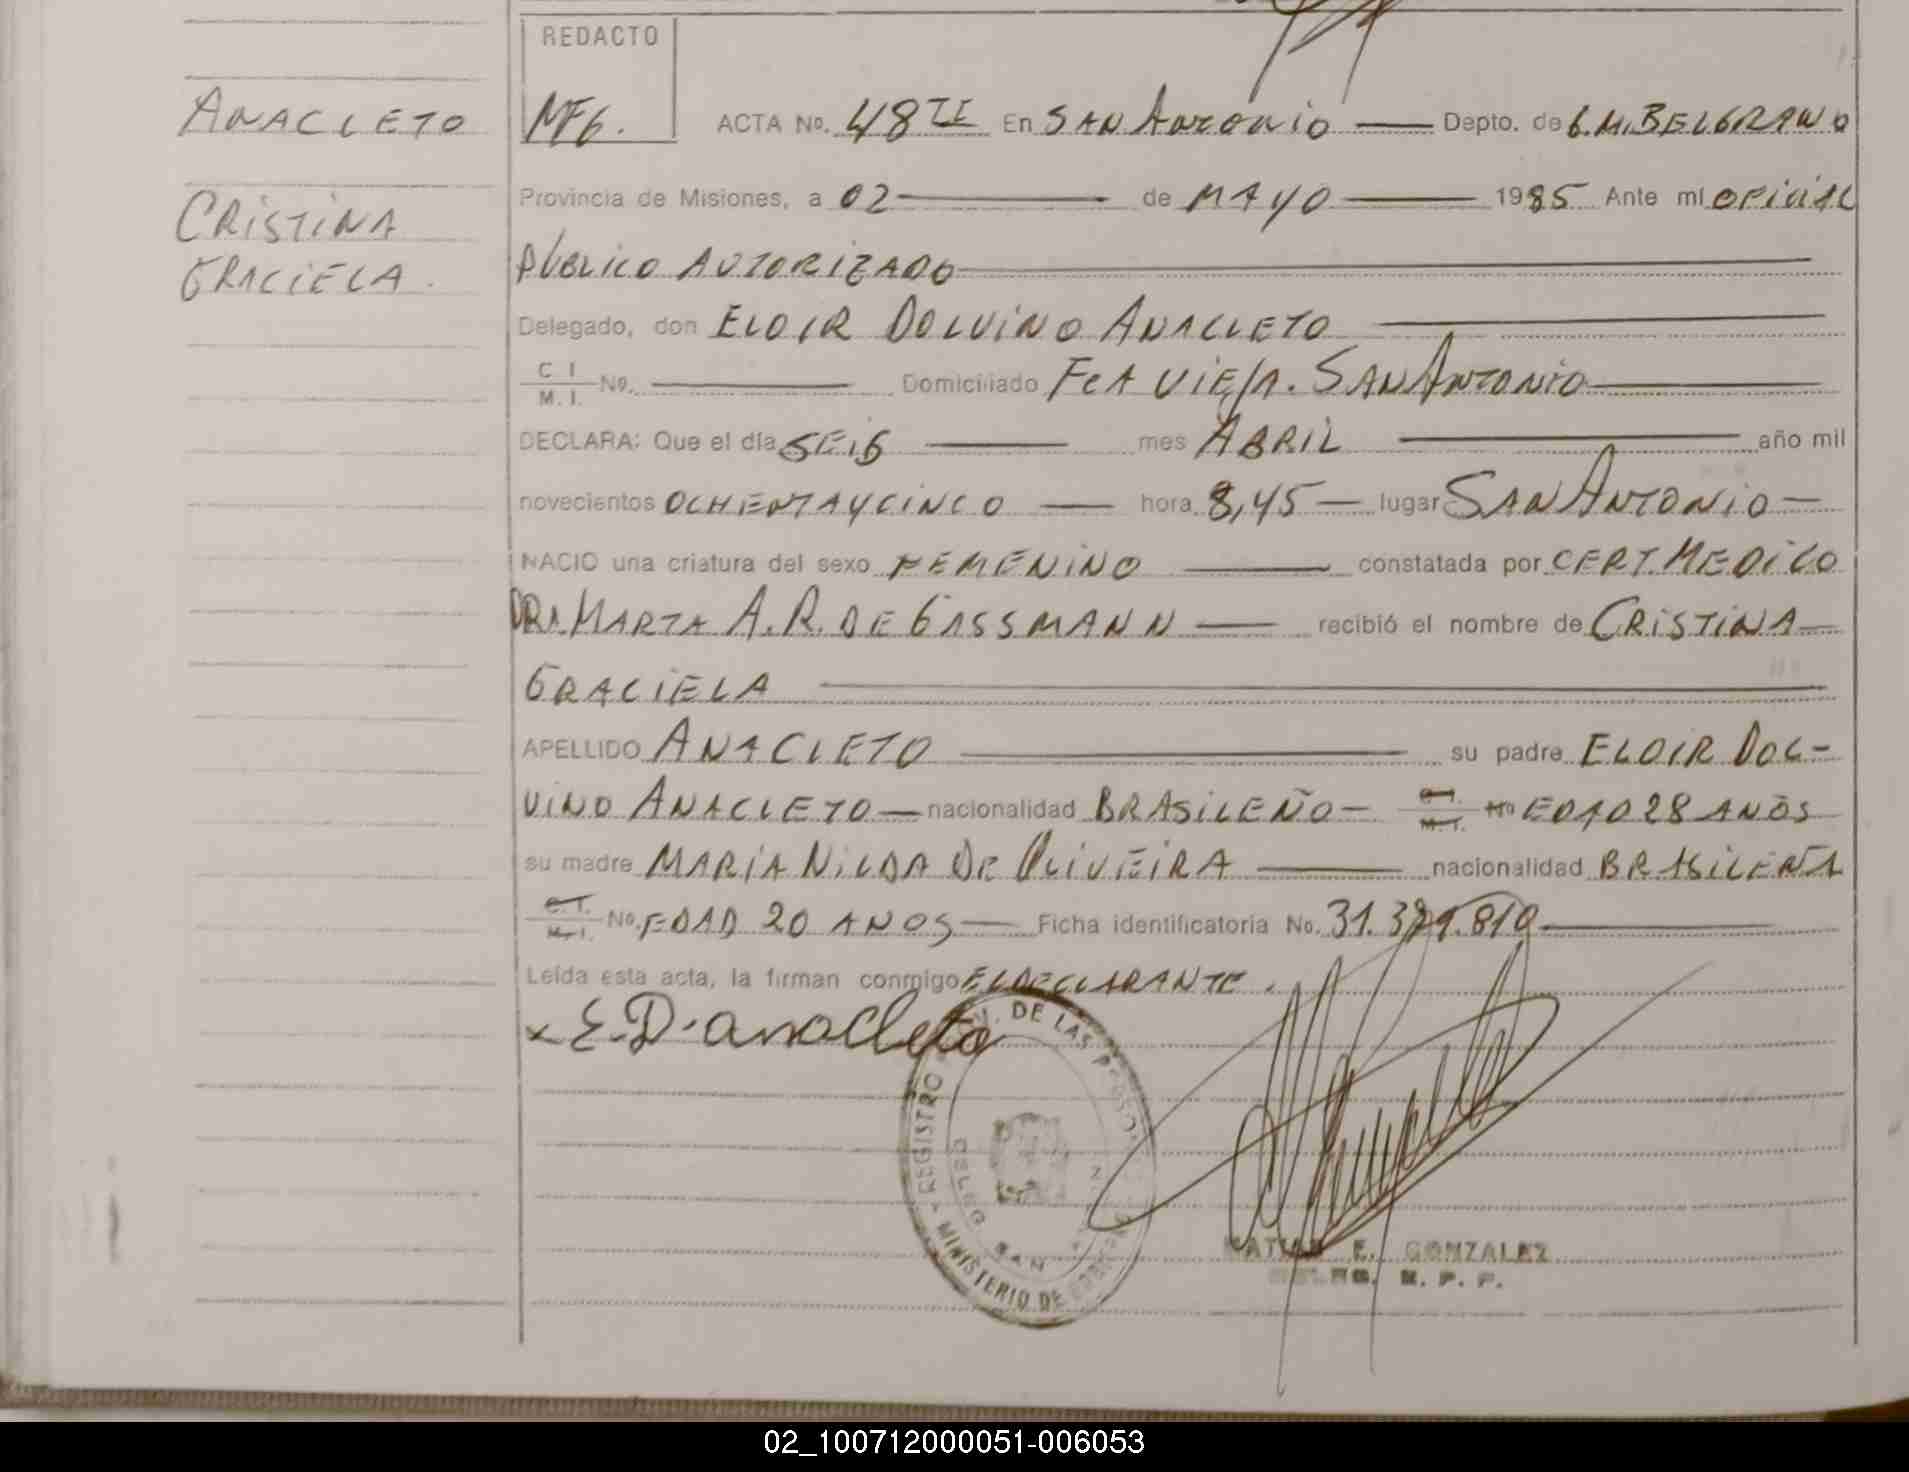 REDACTO
MFG.
ANACLETO
CRISTINA
GRACIELA.
ACTA No. 48 TI En SAN ANTONIO — Depto. de G.M. BELGRANO
Provincia de Misiones, a 02 — de MAYO — 1985 Ante mí OFICIAL
PUBLICO AUTORIZADO
Delegado, don ELOIR DOLVINO ANACLETO
C I
M. I. No. — Domiciliado FCA VIEJA. SAN ANTONIO
DECLARA: Que el día SEIS — mes ABRIL — año mil
novecientos OCHENTAYCINCO — hora 8,45 — lugar SAN ANTONIO —
NACIO una criatura del sexo FEMENINO — constatada por CERT. MEDICO
DRA. MARTA A. R. DE GASSMANN — recibió el nombre de CRISTINA —
GRACIELA
APELLIDO ANACLETO — su padre ELOIR DOL-
VINO ANACLETO — nacionalidad BRASILEÑO — C.I. M.I. No EDAD 28 AÑOS
su madre MARIA NILDA DE OLIVEIRA — nacionalidad BRASILEÑA
C.I. M.I. No. EDAD 20 AÑOS — Ficha identificatoria No. 31.329.810
Leída esta acta, la firman conmigo EL DECLARANTE.
x E. D. anacleto
REGISTRO DE LAS
DELEG SAN
MINISTERIO DE
E. GONZALEZ
02_100712000051-006053